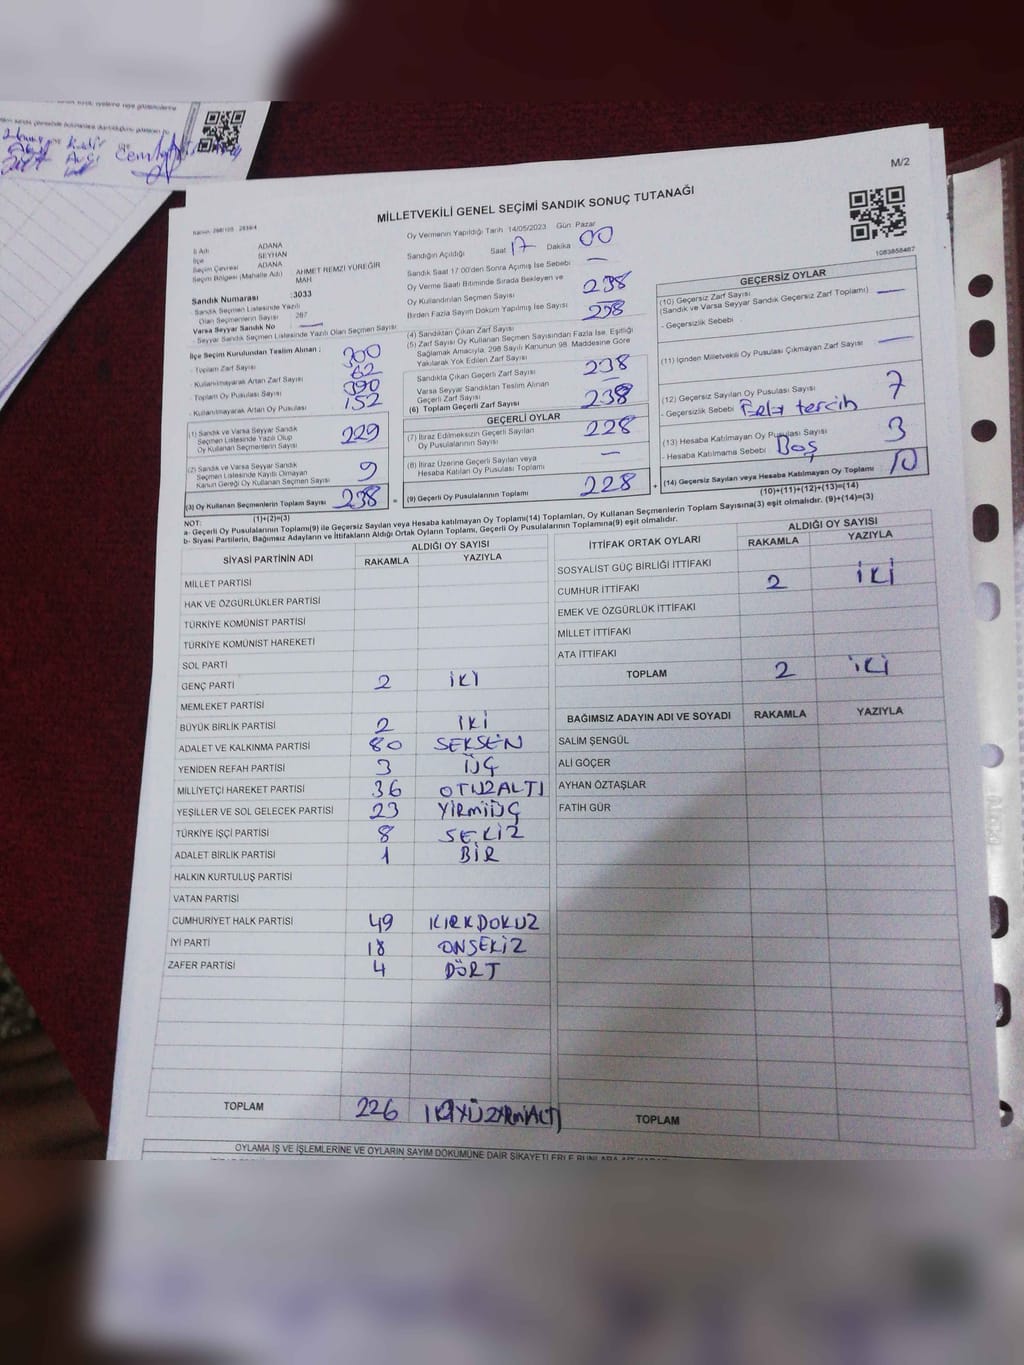 M/2
MİLLETVEKİLİ GENEL SEÇİMİ SANDIK SONUÇ TUTANAĞI
1083858467
İl Adı ADANA
İlçe SEYHAN
Seçim Çevresi ADANA
Seçim Bölgesi (Mahalle Adı) AHMET REMZİ YÜREĞİR MAH
Sandık Numarası :3033
- Sandık Seçmen Listesinde Yazılı
Olan Seçmenlerin Sayısı 287
Varsa Seyyar Sandık No —
- Seyyar Sandık Seçmen Listesinde Yazılı Olan Seçmen Sayısı
İlçe Seçim Kurulundan Teslim Alınan :
- Toplam Zarf Sayısı 300
- Kullanılmayarak Artan Zarf Sayısı 62
- Toplam Oy Pusulası Sayısı 390
- Kullanılmayarak Artan Oy Pusulası 152
(1) Sandık ve Varsa Seyyar Sandık
Seçmen Listesinde Yazılı Olup
Oy Kullanan Seçmenlerin Sayısı 229
(2) Sandık ve Varsa Seyyar Sandık
Seçmen Listesinde Kayıtlı Olmayan
Kanun Gereği Oy Kullanan Seçmen Sayısı 9
(3) Oy Kullanan Seçmenlerin Toplam Sayısı 238
(1)+(2)=(3)
Oy Vermenin Yapıldığı Tarih 14/05/2023 Gün Pazar
Sandığın Açıldığı Saat 17 Dakika 00
Sandık Saat 17:00'den Sonra Açılmış İse Sebebi —
Oy Verme Saati Bitiminde Sırada Bekleyen ve
Oy Kullandırılan Seçmen Sayısı 238
Birden Fazla Sayım Döküm Yapılmış İse Sayısı —
(4) Sandıktan Çıkan Zarf Sayısı 238
(5) Zarf Sayısı Oy Kullanan Seçmen Sayısından Fazla İse, Eşitliği
Sağlamak Amacıyla, 298 Sayılı Kanunun 98. Maddesine Göre
Yakılarak Yok Edilen Zarf Sayısı
Sandıkta Çıkan Geçerli Zarf Sayısı 238
Varsa Seyyar Sandıktan Teslim Alınan
Geçerli Zarf Sayısı —
(6) Toplam Geçerli Zarf Sayısı 238
GEÇERLİ OYLAR
(7) İtiraz Edilmeksizin Geçerli Sayılan
Oy Pusulalarının Sayısı 228
(8) İtiraz Üzerine Geçerli Sayılan veya
Hesaba Katılan Oy Pusulası Toplamı —
(9) Geçerli Oy Pusulalarının Toplamı 228
GEÇERSİZ OYLAR
(10) Geçersiz Zarf Sayısı
(Sandık ve Varsa Seyyar Sandık Geçersiz Zarf Toplamı) —
- Geçersizlik Sebebi
(11) İçinden Milletvekili Oy Pusulası Çıkmayan Zarf Sayısı —
(12) Geçersiz Sayılan Oy Pusulası Sayısı 7
- Geçersizlik Sebebi tercih
(13) Hesaba Katılmayan Oy Pusulası Sayısı 3
- Hesaba Katılmama Sebebi Boş
(14) Geçersiz Sayılan veya Hesaba Katılmayan Oy Toplamı 10
(10)+(11)+(12)+(13)=(14)
NOT:
a- Geçerli Oy Pusulalarının Toplamı(9) ile Geçersiz Sayılan veya Hesaba katılmayan Oy Toplamı(14) Toplamları, Oy Kullanan Seçmenlerin Toplam Sayısına(3) eşit olmalıdır. (9)+(14)=(3)
b- Siyasi Partilerin, Bağımsız Adayların ve İttifakların Aldığı Ortak Oyların Toplamı, Geçerli Oy Pusulalarının Toplamına(9) eşit olmalıdır.
SİYASİ PARTİNİN ADI ALDIĞI OY SAYISI
RAKAMLA YAZIYLA
MİLLET PARTİSİ
HAK VE ÖZGÜRLÜKLER PARTİSİ
TÜRKİYE KOMÜNİST PARTİSİ
TÜRKİYE KOMÜNİST HAREKETİ
SOL PARTİ
GENÇ PARTİ 2 İKİ
MEMLEKET PARTİSİ
BÜYÜK BİRLİK PARTİSİ 2 İKİ
ADALET VE KALKINMA PARTİSİ 80 SEKSEN
YENİDEN REFAH PARTİSİ 3 ÜÇ
MİLLİYETÇİ HAREKET PARTİSİ 36 OTUZALTI
YEŞİLLER VE SOL GELECEK PARTİSİ 23 YİRMİÜÇ
TÜRKİYE İŞÇİ PARTİSİ 8 SEKİZ
ADALET BİRLİK PARTİSİ 1 BİR
HALKIN KURTULUŞ PARTİSİ
VATAN PARTİSİ
CUMHURİYET HALK PARTİSİ 49 KIRKDOKUZ
İYİ PARTİ 18 ONSEKİZ
ZAFER PARTİSİ 4 DÖRT
TOPLAM 226
İTTİFAK ORTAK OYLARI ALDIĞI OY SAYISI
RAKAMLA YAZIYLA
SOSYALİST GÜÇ BİRLİĞİ İTTİFAKI
CUMHUR İTTİFAKI 2 İKİ
EMEK VE ÖZGÜRLÜK İTTİFAKI
MİLLET İTTİFAKI
ATA İTTİFAKI
TOPLAM 2 İKİ
BAĞIMSIZ ADAYIN ADI VE SOYADI RAKAMLA YAZIYLA
SALİM ŞENGÜL
ALİ GÖÇER
AYHAN ÖZTAŞLAR
FATİH GÜR
TOPLAM
OYLAMA İŞ VE İŞLEMLERİNE VE OYLARIN SAYIM DÖKÜMÜNE DAİR ŞİKAYETLERLE BUNLARA